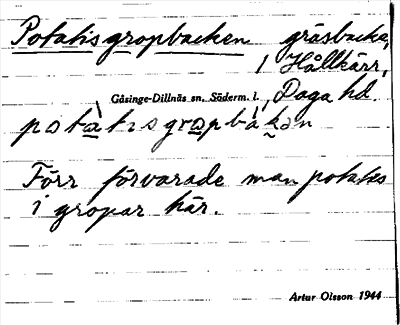 Potatisgropbacken gräsbacke,
i Hållkärr,
Gåsinge-Dillnäs sn, Söderm. l. Daga hd.
Förr förvarade man potatis
i gropar här.
Artur Olsson 1944